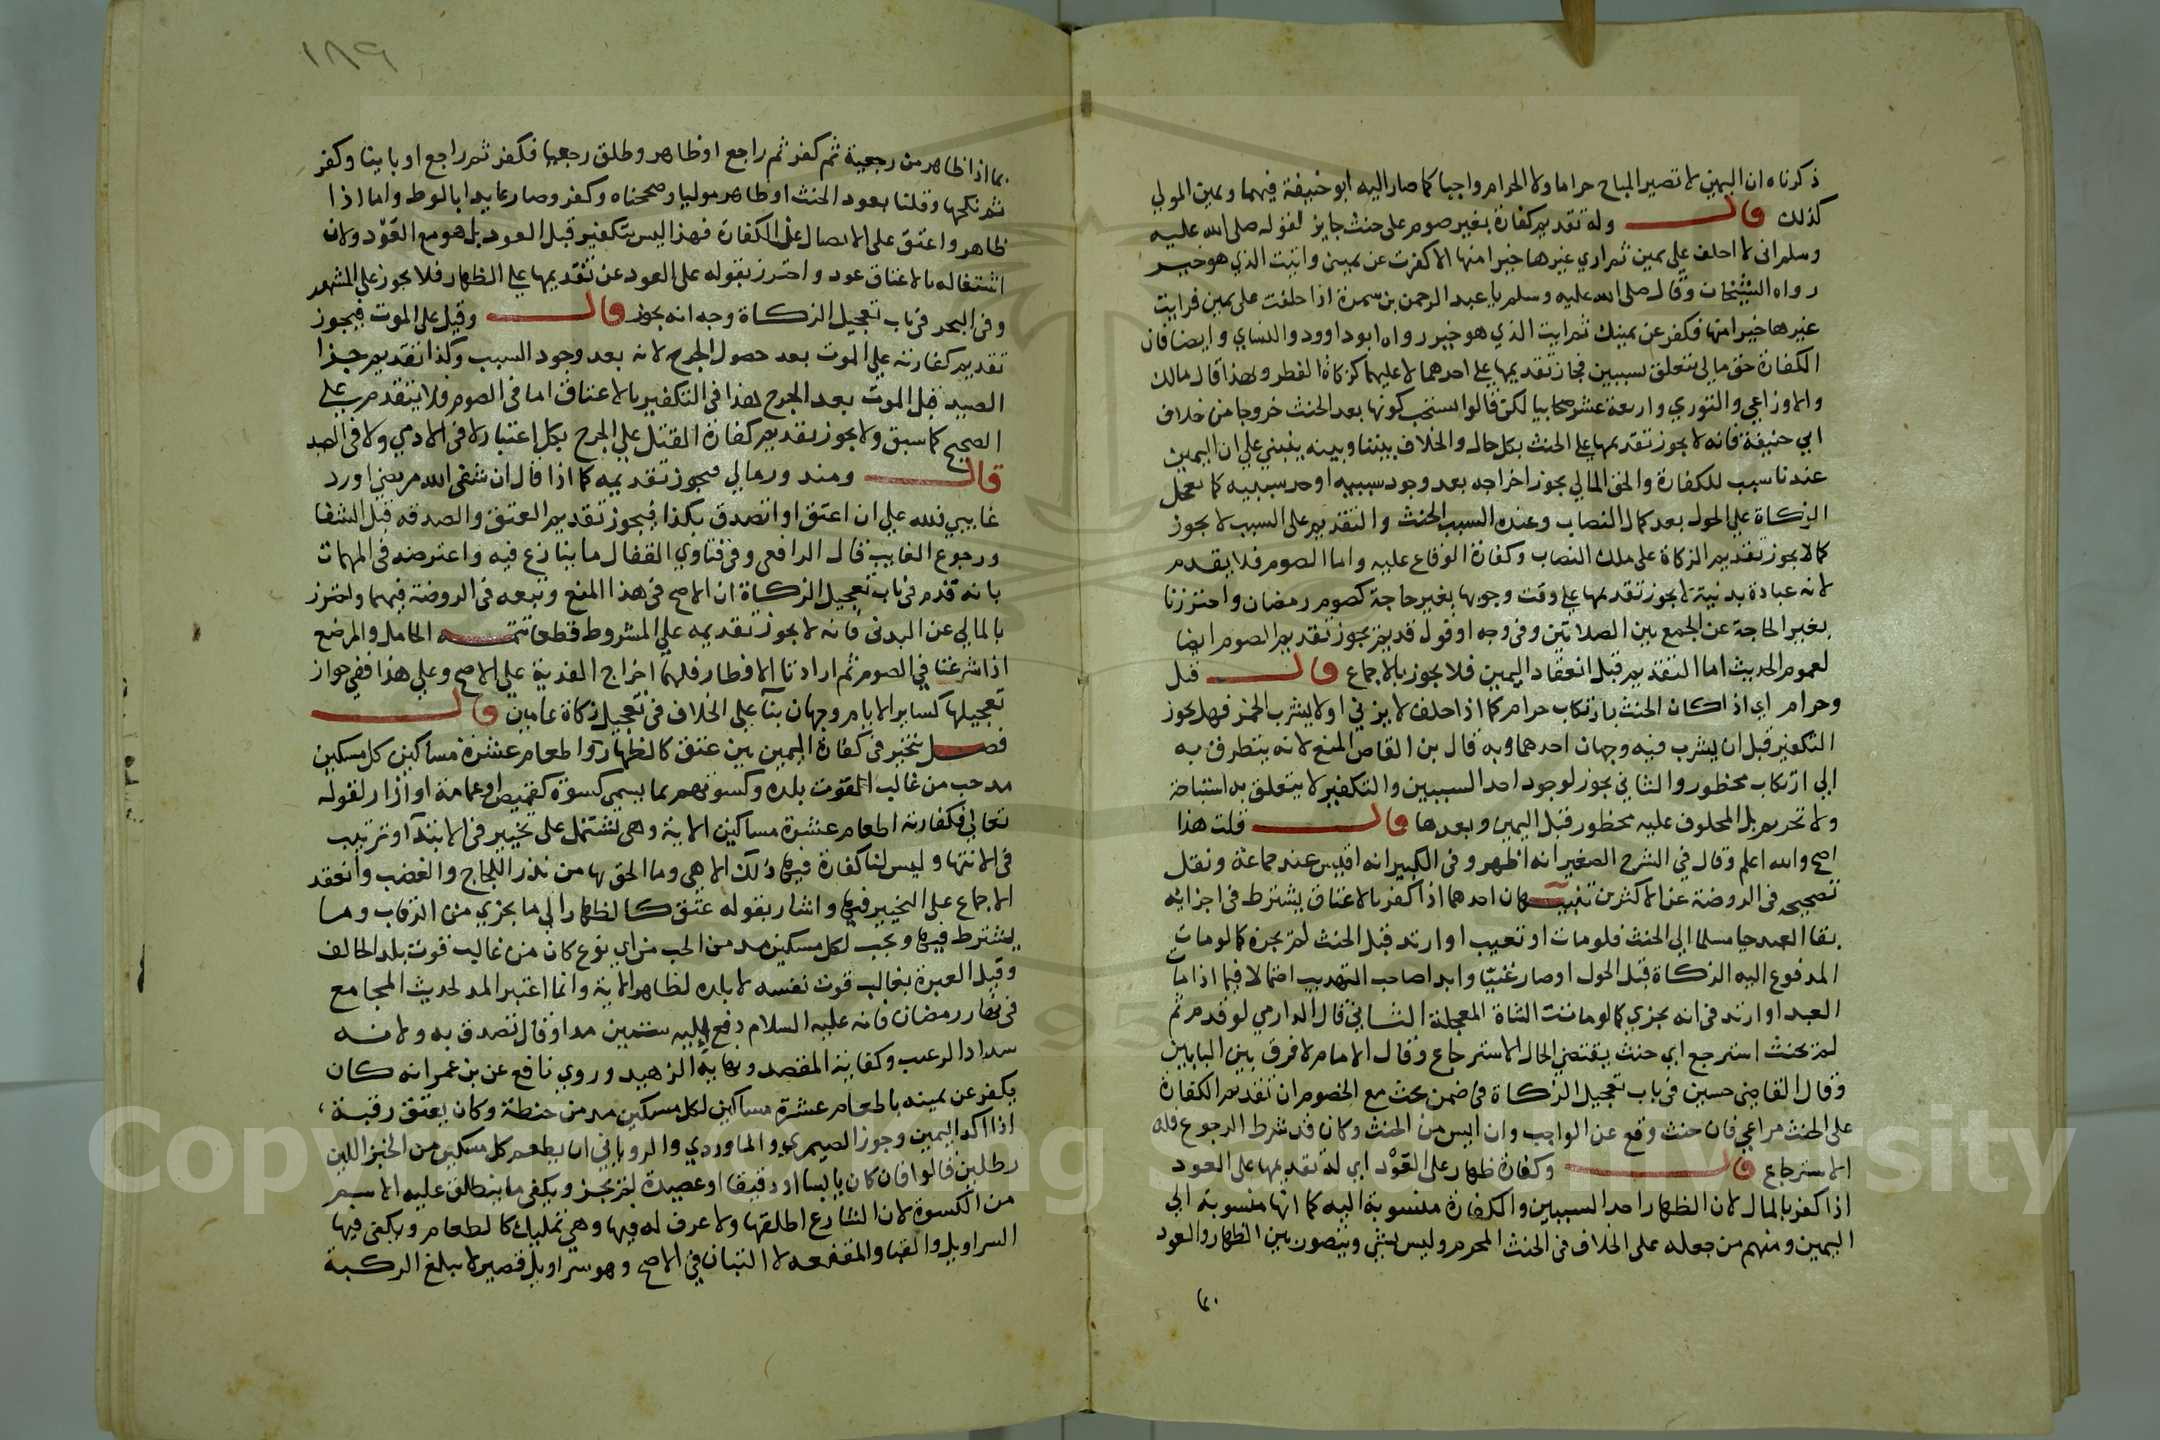 ذكرناه ان اليمين لا تصير المباح حراما ولا الحرام واجبا كما صار اليه ابو حنيفة فيهما ويمين المولي
كذلك قال وله تقديم كفارة بغير صوم على حنث جايز لقوله صلى الله عليه
وسلم اني لا احلف علي يمين ثم اري غيرها خيرا منها الا كفرت عن يميني واتيت الذي هو خير
رواه الشيخان وقال صلى الله عليه وسلم يا عبد الرحمن بن سمرة اذا حلفت على يمين فرايت
غيرها خيرا منها فكفر عن يمينك ثم ايت الذي هو خير رواه ابو داوود والنساي وايضا فان
الكفارة حق مالي تتعلق بسببين فجاز تقديمها علي احدهما لا عليهما كزكاة الفطر وبهذا قال مالك
والاوزاعي والثوري واربعة عشر صحابيا لكن قالوا يستحب كونها بعد الحنث خروجا من خلاف
ابي حنيفة فانه لا يجوز تقديمها علي الحنث بكل حال والخلاف بيننا وبينه ينبني علي ان اليمين
عندنا سبب للكفارة والحق المالي يجوز اخراجه بعد وجود سببه او احد سببيه كما تعجل
الزكاة علي الحول بعد كمال النصاب وعنده السبب الحنث والتقديم على السبب لا يجوز
كما لا يجوز تقديم الزكاة على ملك النصاب وكفارة الوقاع عليه واما الصوم فلا يقدم
لانه عبادة بدنية لا يجوز تقديمها علي وقت وجوبها بغير حاجة كصوم رمضان واحترزنا
بغير الحاجة عن الجمع بين الصلاتين وفي وجه او قول قديم يجوز تقديم الصوم ايضا
لعموم الحديث اما التقديم قبل انعقاد اليمين فلا يجوز بالاجماع قال قبل
وحرام اي اذا كان الحنث بارتكاب حرام كما اذا حلف لا يزني او لا يشرب الخمر فهل يجوز
التكفير قبل ان يشرب فيه وجهان احدهما وبه قال بن القاص المنع لانه يتطرق به
الي ارتكاب محظور والثاني يجوز لوجود احد السببين والتكفير لا يتعلق به استباحة
ولا تحريم بل المحلوف عليه محظور قبل اليمين وبعدها قال قلت هذا
اصح والله اعلم وقال في الشرح الصغير انه اظهر وفي الكبير انه اقيس عند جماعة ونقل
تصحيحه في الروضة عن الاكثرين تنبيهان احدهما اذا كفر بالاعتاق يشترط في اجزايه
بقا العبد حيا مسلما الي الحنث فلو مات او تعيب او ارتد قبل الحنث لم يجزه كما لو مات
المدفوع اليه الزكاة قبل الحول او صار غنيا وابدا صاحب التهذيب احتمالا فيما اذا مات
العبد او ارتد في انه يجزي كما لو ماتت الشاة المعجلة الثاني قال الدارمي لو قدم ثم
لم يحنث استرجع اي حنث يقتضي الحال الاسترجاع وقال الامام لا فرق بين البابين
وقال القاضي حسين في باب تعجيل الزكاة في ضمن بحث مع الخصوم ان تقديم الكفارة
على الحنث مراعي فان حنث وقع عن الواجب وان ايس من الحنث وكان قد شرط الرجوع فله
الاسترجاع قال وكفارة ظهار على العود اي له تقديمها على العود
اذا كفر بالمال لان الظهار احد السببين والكفارة منسوبة اليه كما انها منسوبة الي
اليمين ومنهم من جعله على الخلاف في الحنث المحرم وليس بشي ويتصور بين الظهار والعود
١٨٩
بما اذا ظاهر من رجعية ثم كفر ثم راجع او ظاهر وطلق رجعيا فكفر ثم راجع او باينا وكفر
ثم نكحها وقلنا بعود الحنث او ظاهر موليا وصححناه وكفر وصار عايدا بالوط واما اذا
ظاهر واعتق على الاتصال عن الكفارة فهذا ليس بتكفير قبل العود بل هو مع العود ولان
اشتغاله بالاعتاق عود واحترز بقوله على العود عن تقديمها علي الظهار فلا يجوز علي المشهور
وفي البحر في باب تعجيل الزكاة وجه انه يجوز قال وقتل على الموت فيجوز
تقديم كفارته علي الموت بعد حصول الجرح لانه بعد وجود السبب وكذا تقديم جزا
الصيد قبل الموت بعد الجرح هذا في التكفير بالاعتاق اما في الصوم فلا يتقدم علي
الصحيح كما سبق ولا يجوز تقديم كفارة القتل علي الجرح بكل اعتبار لا في الادمي ولا في الصيد
قال ومنذور مالي فيجوز تقديمه كما اذا قال ان شفى الله مريضي او رد
غايبي فلله علي ان اعتق او اتصدق بكذا فيجوز تقديم العتق والصدقة قبل الشفا
ورجوع الغايب قال الرافعي وفي فتاوي القفال ما ينازع فيه واعترضه في المهمات
بانه قدم في باب تعجيل الزكاة ان الاصح في هذا المنع وتبعه في الروضة فيهما واحترز
بالمالي عن البدني فانه لا يجوز تقديمه علي المشروط قطعا تتمه الحامل والمرضع
اذا شرعتا في الصوم ثم ارادتا الافطار فلهما اخراج الفدية علي الاصح وعلي هذا ففي جواز
تعجيلها كساير الايام وجهان بناء على الخلاف في تعجيل زكاة عامين قال
فصل يتخير في كفارة اليمين بين عتق كالظهار واطعام عشرة مساكين كل مسكين
مد حب من غالب القوت بلده وكسوتهم بما يسمى كسوة كقميص او عمامة او ازار لقوله
تعالي فكفارته اطعام عشرة مساكين الاية وهي تشتمل على تخيير في الابتداء وترتيب
في الانتها وليس لنا كفارة فيها ذلك الا هي وما الحق بها من نذر اللجاج والغضب وانعقد
الاجماع على التخيير فيها واشار بقوله عتق كالظهار الي ما يجزي من الرقاب وما
يشترط فيها ويجب لكل مسكين مد من الحب من اي نوع كان من غالب قوت بلد الحالف
وقيل العبرة بغالب قوت نفسه لا بلده لظاهر الاية وانما اعتبر المد لحديث المجامع
في نهار رمضان فانه عليه السلام دفع اليه ستين مدا وقال تصدق به ولانه
سداد الرغيب وكفاية المقتصد ونهاية الزهيد وروي نافع عن بن عمر انه كان
يكفر عن يمينه باطعام عشرة مساكين لكل مسكين مد من حنطة وكان يعتق رقبة
اذا اكد اليمين وجوز الصيمري والماوردي والروياني ان يطعم كل مسكين من الخبز اللين
رطلين قالوا فان كان يابسا او دقيقا او عصيدة لم يجز ويكفي ما ينطلق عليه الاسم
من الكسوة لان الشارع اطلقها ولا عرف له فيها وهي تمليك كالطعام ويكفي فيها
السراويل والقبا والمقنعه لا التبان في الاصح وهو سراويل قصير لا يبلغ الركبة
Copyright © King Saud University